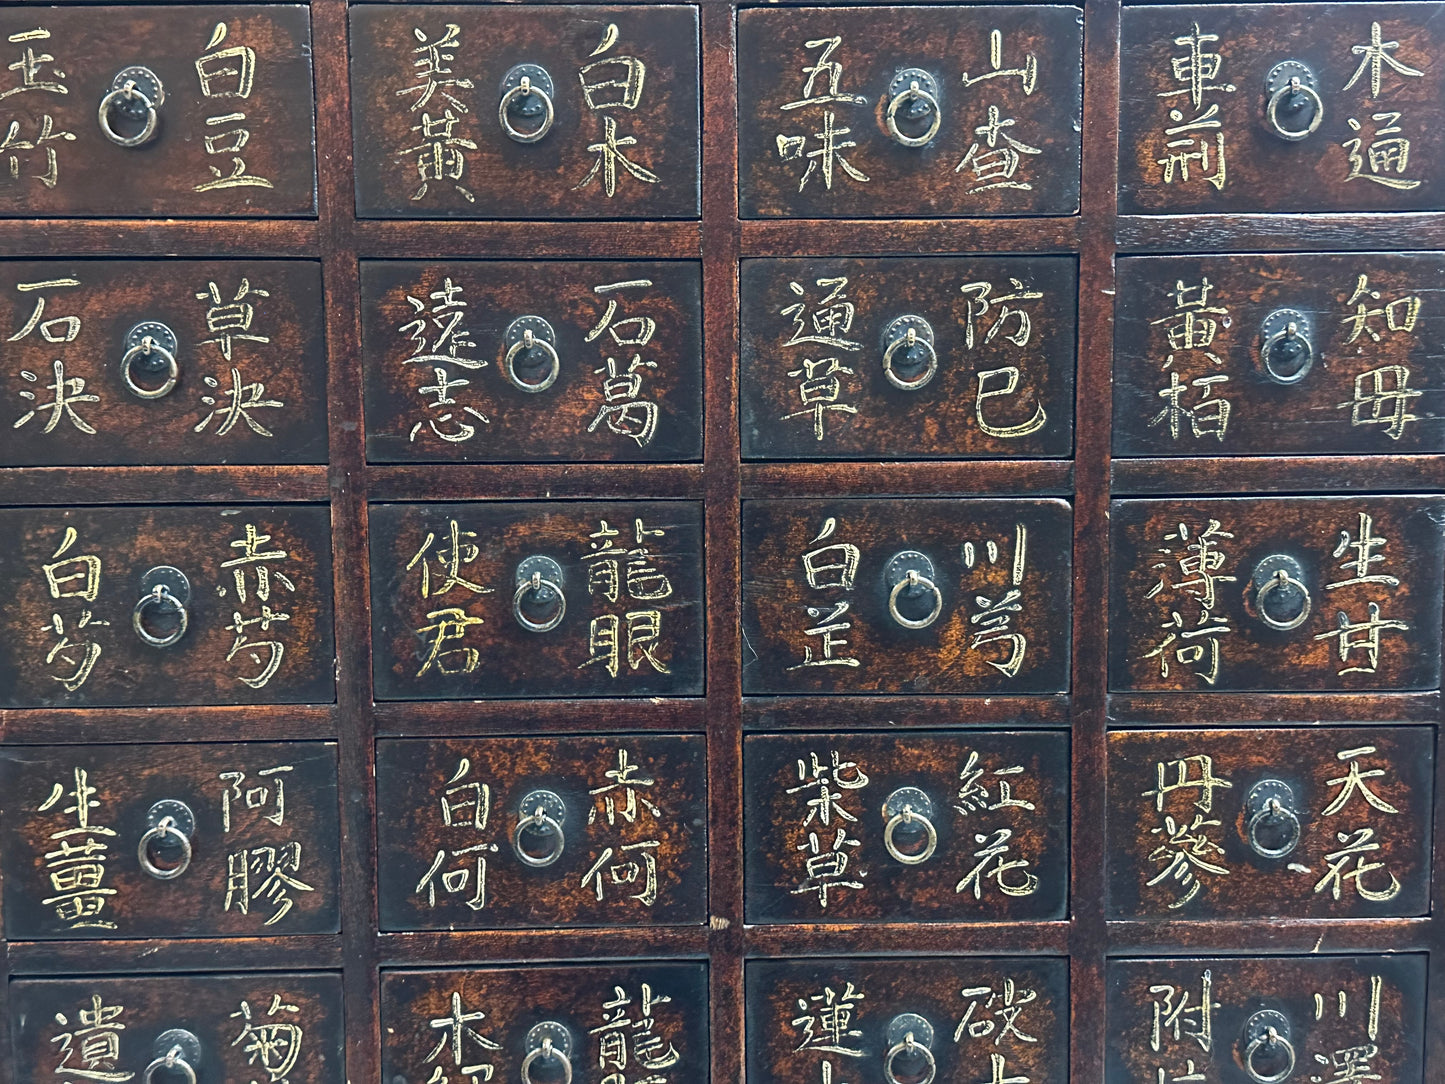 玉竹
白豆
美黃
白木
五味
山查
車前
木通
石決
草決
遠志
石葛
通草
防巳
黃栢
知母
白芍
赤芍
使君
龍眼
白芷
川芎
薄荷
生甘
生薑
阿膠
白何
赤何
柴草
紅花
丹蔘
天花
遺
菊
木
龍
蓮
附
川澤